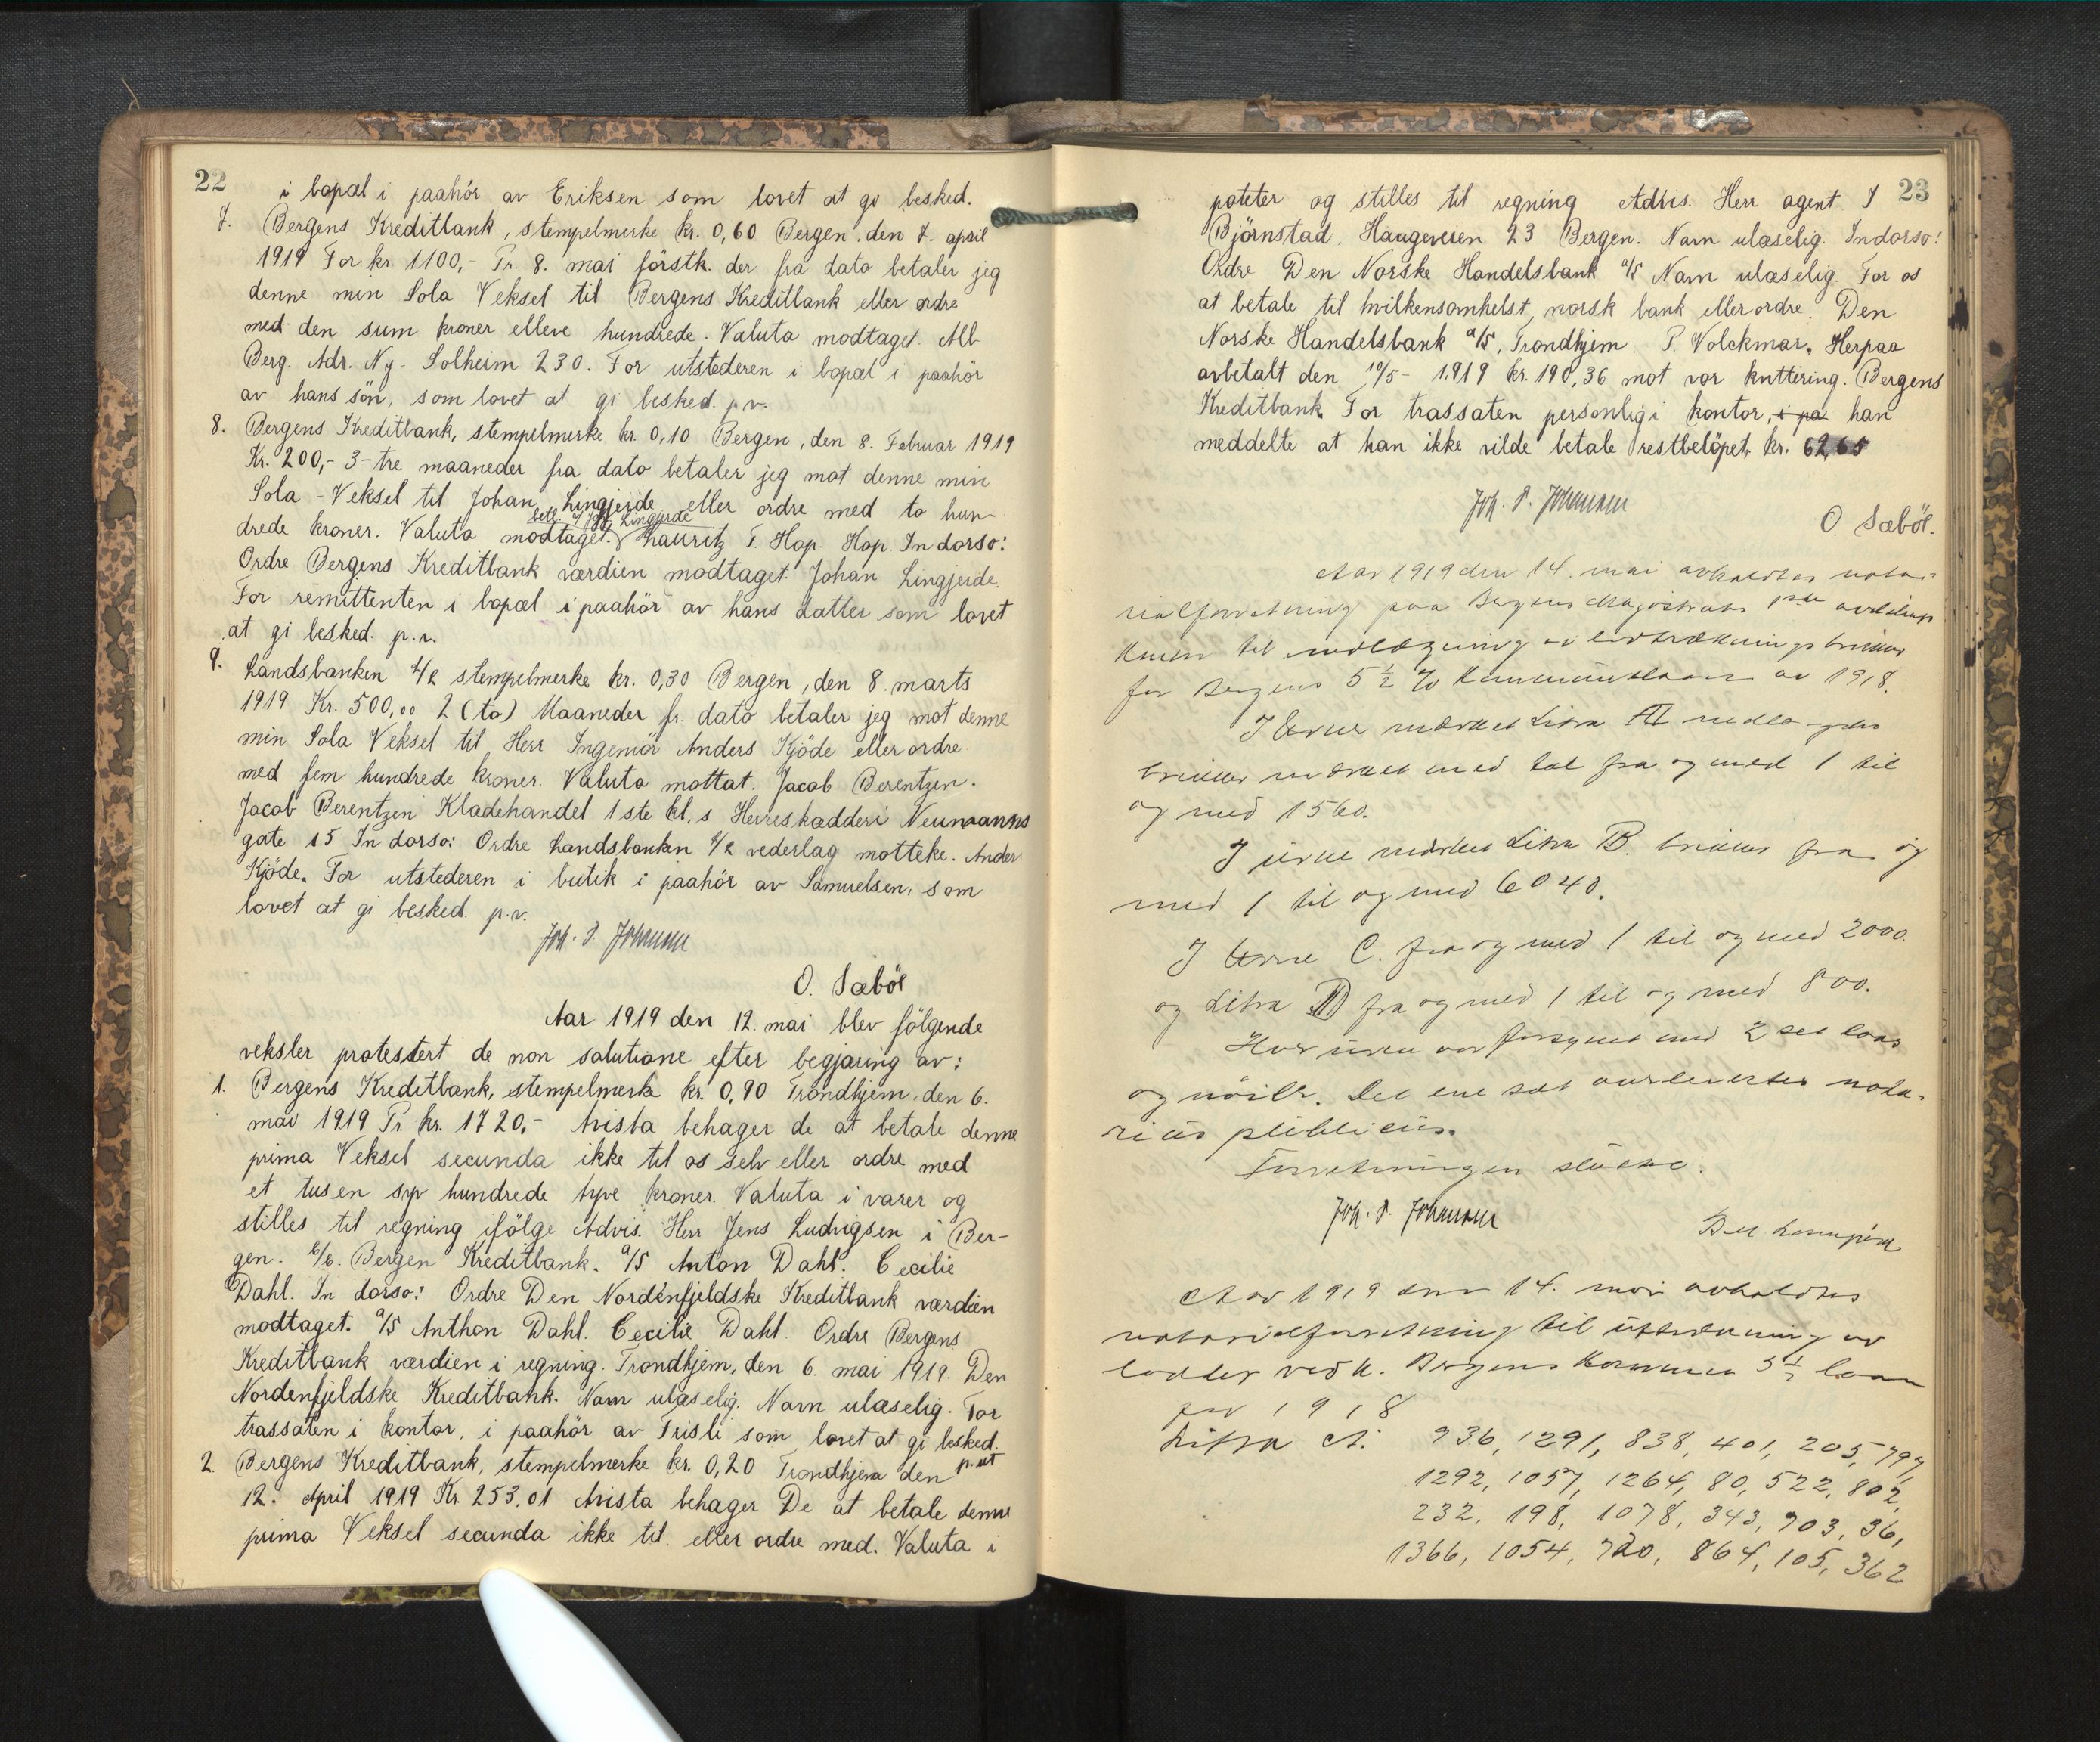 22
i bopæl i paahör av Eriksen som lovet at gi besked.
7. Bergens Kreditbank, stempelmerke kr. 0,60 Bergen, den 7. april
1919 For kr. 1100,- Pr. 8. mai förstk. der fra dato betaler jeg
denne min Sola Veksel til Bergens Kreditbank eller ordre
med den sum kroner elleve hundrede. Valuta modtaget. Alb
Berg. Adr. Ny- Solheim 230. For utstederen i bopæl i paahör
av hans sön, som lovet at gi besked. p.v.
8. Bergens Kreditbank, stempelmerke kr. 0,10 Bergen, den 8. Februar 1919
Kr. 200,- 3-tre maaneder fra dato betaler jeg mot denne min
Sola-Veksel til Johan Lingjerde eller ordre med to hun-
drede kroner. Valuta modtaget. Lauritz T. Hop. Hop. In dorso:
Ordre Bergens Kreditbank værdien modtaget. Johan Lingjerde.
For remittenten i bopæl i paahör av hans datter som lovet
at gi besked. p.v.
9. Landsbanken A/L stempelmerke kr. 0,30 Bergen, den 8. marts
1919 Kr. 500,00 2 (to) Maaneder fr. dato betaler jeg mot denne
min Sola Veksel til Herr Ingeniör Anders Kjöde eller ordre
med fem hundrede kroner. Valuta mottat. Jacob Berentzen.
Jacob Berentzen Klædehandel 1ste kl.s Herreskædderi Neumanns
gate 15 In dorso: Ordre Landsbanken A/L vederlag motteke. Anders
Kjöde. For utstederen i butik i paahör av Samuelsen, som
lovet at gi besked. p.v.
Joh. P. Johansen
O. Sæböe
Aar 1919 den 12. mai blev fölgende
veksler protestert de non solutione efter begjæring av:
1. Bergens Kreditbank, stempelmerke kr. 0,90 Trondhjem, den 6.
mai 1919 Pr. kr. 1720,- Avista behager de at betale denne
prima Veksel secunda ikke til os selv eller ordre med
et tusen syv hundrede tyve kroner. Valuta i varer og
stilles til regning ifölge Advis. Herr Jens Ludvigsen i Ber-
gen. Bergen Kreditbank. A/S Anton Dahl. Cecilie
Dahl. In dorso: Ordre Den Nordenfjeldske Kreditbank værdien
modtaget. A/S Anthon Dahl. Cecilie Dahl. Ordre Bergens
Kreditbank værdien i regning. Trondhjem, den 6. mai 1919. Den
Nordenfjeldske Kreditbank. Navn ulæselig. Navn ulæselig. For
trassaten i kontor, i paahör av Frisli som lovet at gi besked.
2. Bergens Kreditbank, stempelmerke kr. 0,20 Trondhjem den
12. April 1919 Kr. 253.01 Avista behager De at betale denne
prima Veksel secunda ikke til. eller ordre med. Valuta i
23
poteter og stilles til regning Advis. Herr agent J
Björnstad. Haugeveien 23 Bergen. Navn ulæselig. In dorso:
Ordre Den Norske Handelsbank A/S Navn ulæselig. For os
at betale til hvilkensomhelst norsk bank eller ordre. Den
Norske Handelsbank A/S, Trondhjem. P. Volckmar. Herpaa
avbetalt den 10/5- 1919 kr. 190,36 mot vor kvittering. Bergens
Kreditbank. For trassaten personlig i kontor, i pa han
meddelte at han ikke vilde betale restbelöpet, kr. 62,65
Joh. P. Johansen
O. Sæböe.
Aar 1919 den 14. mai avholdtes nota-
rialforretning paa Bergens Magistrats 1ste avdelings
til nedlægning av utrækningsbrikker
for Bergens 5 1/2 % Kommunelaan av 1918.
I Urne mærket Litra A nedlagdes
brikker mærket med tal fra og med 1 til
og med 1560.
I urne mærket Litra B. brikker fra og
med 1 til og med 6040.
I Urne C. fra og med 1 til og med 2000.
og Litra D fra og med 1 til og med 800.
Hver urne var forsynet med 2 set laas
og nöile. Det ene sæt notа-
rius publicus.
Forretningen sluttet.
Joh. P. Johansen
Aar 1919 den 14. mai avholdtes
notarialforretning til uttrækning av
lodder vedk. Bergens Kommunes 5 1/2 laan
for 1918
Litra A. 936, 1291, 838, 401, 205, 797,
1292, 1057, 1264, 80, 522, 802,
232, 198, 1078, 343, 903, 36,
1366, 1054, 720, 864, 105, 362